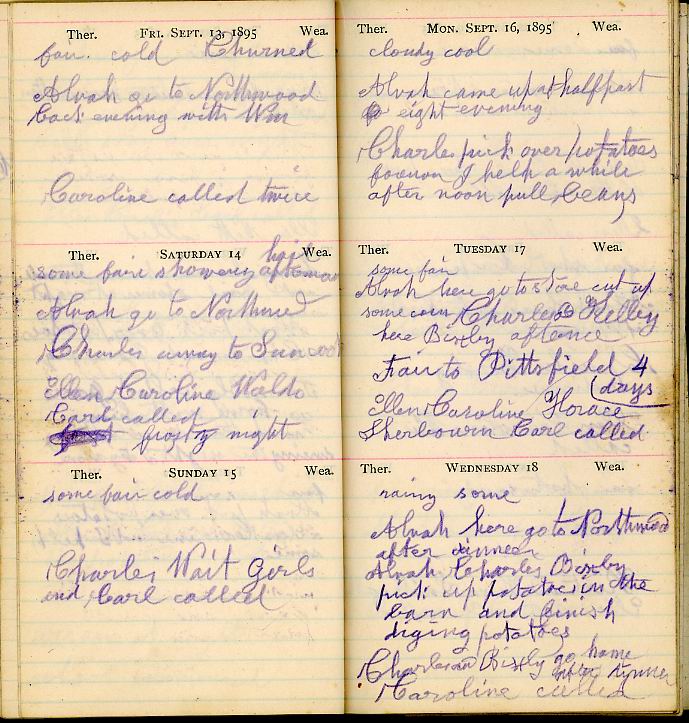 Ther. FRI. SEPT. 13, 1895 Wea.
fair cold Churned
Alvah go to Northwood
back evening with Wm
Caroline called twice
Ther. SATURDAY 14 Wea.
some fair showery hail afternoon
Alvah go to Northwood
Charles away to Suncook
Ellen Caroline Waldo
Carl called
frosty night
Ther. SUNDAY 15 Wea.
some fair cold
Charles Wait Girls
and Carl called
Ther. MON. SEPT. 16, 1895 Wea.
cloudy cool
Alvah came up at half past
eight evening
Charles pick over potatoes
forenon I help a while
after noon pull beans
Ther. TUESDAY 17 Wea.
some fair
Alvah here go to store cut up
some corn Charles Kelley
here Bixby
Fair to Pittsfield 4
days
Ellen Caroline Horace
Sherbourn Carl called
Ther. WEDNESDAY 18 Wea.
rainy some
Alvah here go to Northwood
after dinner
Alvah Charles Bixby
pick up potatoes in the
barn and finish
diging potatoes
Charles Bixby go home
after
Caroline called